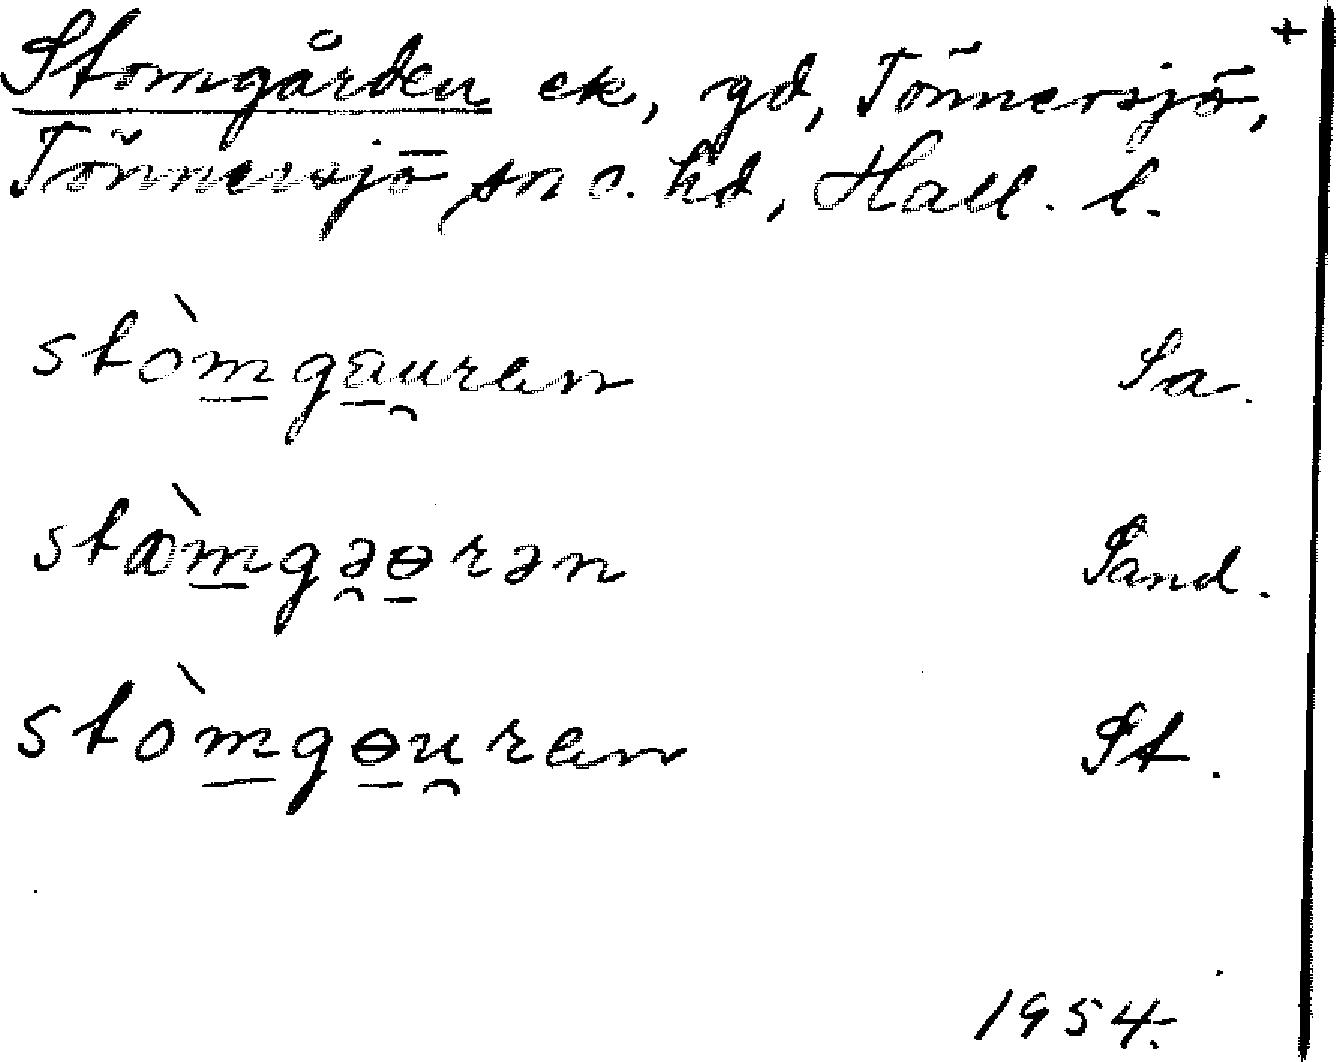 Stomgården ek, gd, Tönnersjö, +
Tönnersjö sn o. hd, Hall. l.
stòmgau̯ren Sa.
stòmgə̯ɵrən Sand.
stòmgɵu̯ren St.
1954.